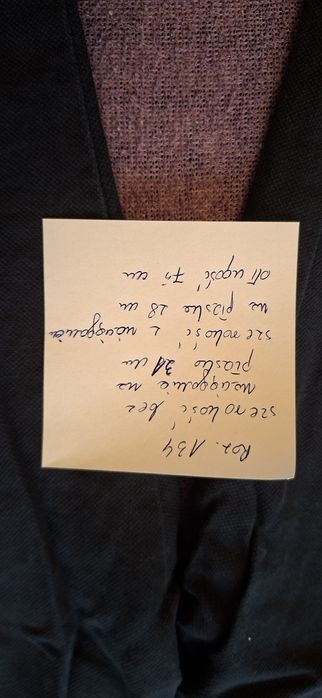 Roz. 134
szerokość bez
naciągania na
płasko 21 cm
szerokość z naciągania
na płasko 28 cm
długość 75 cm